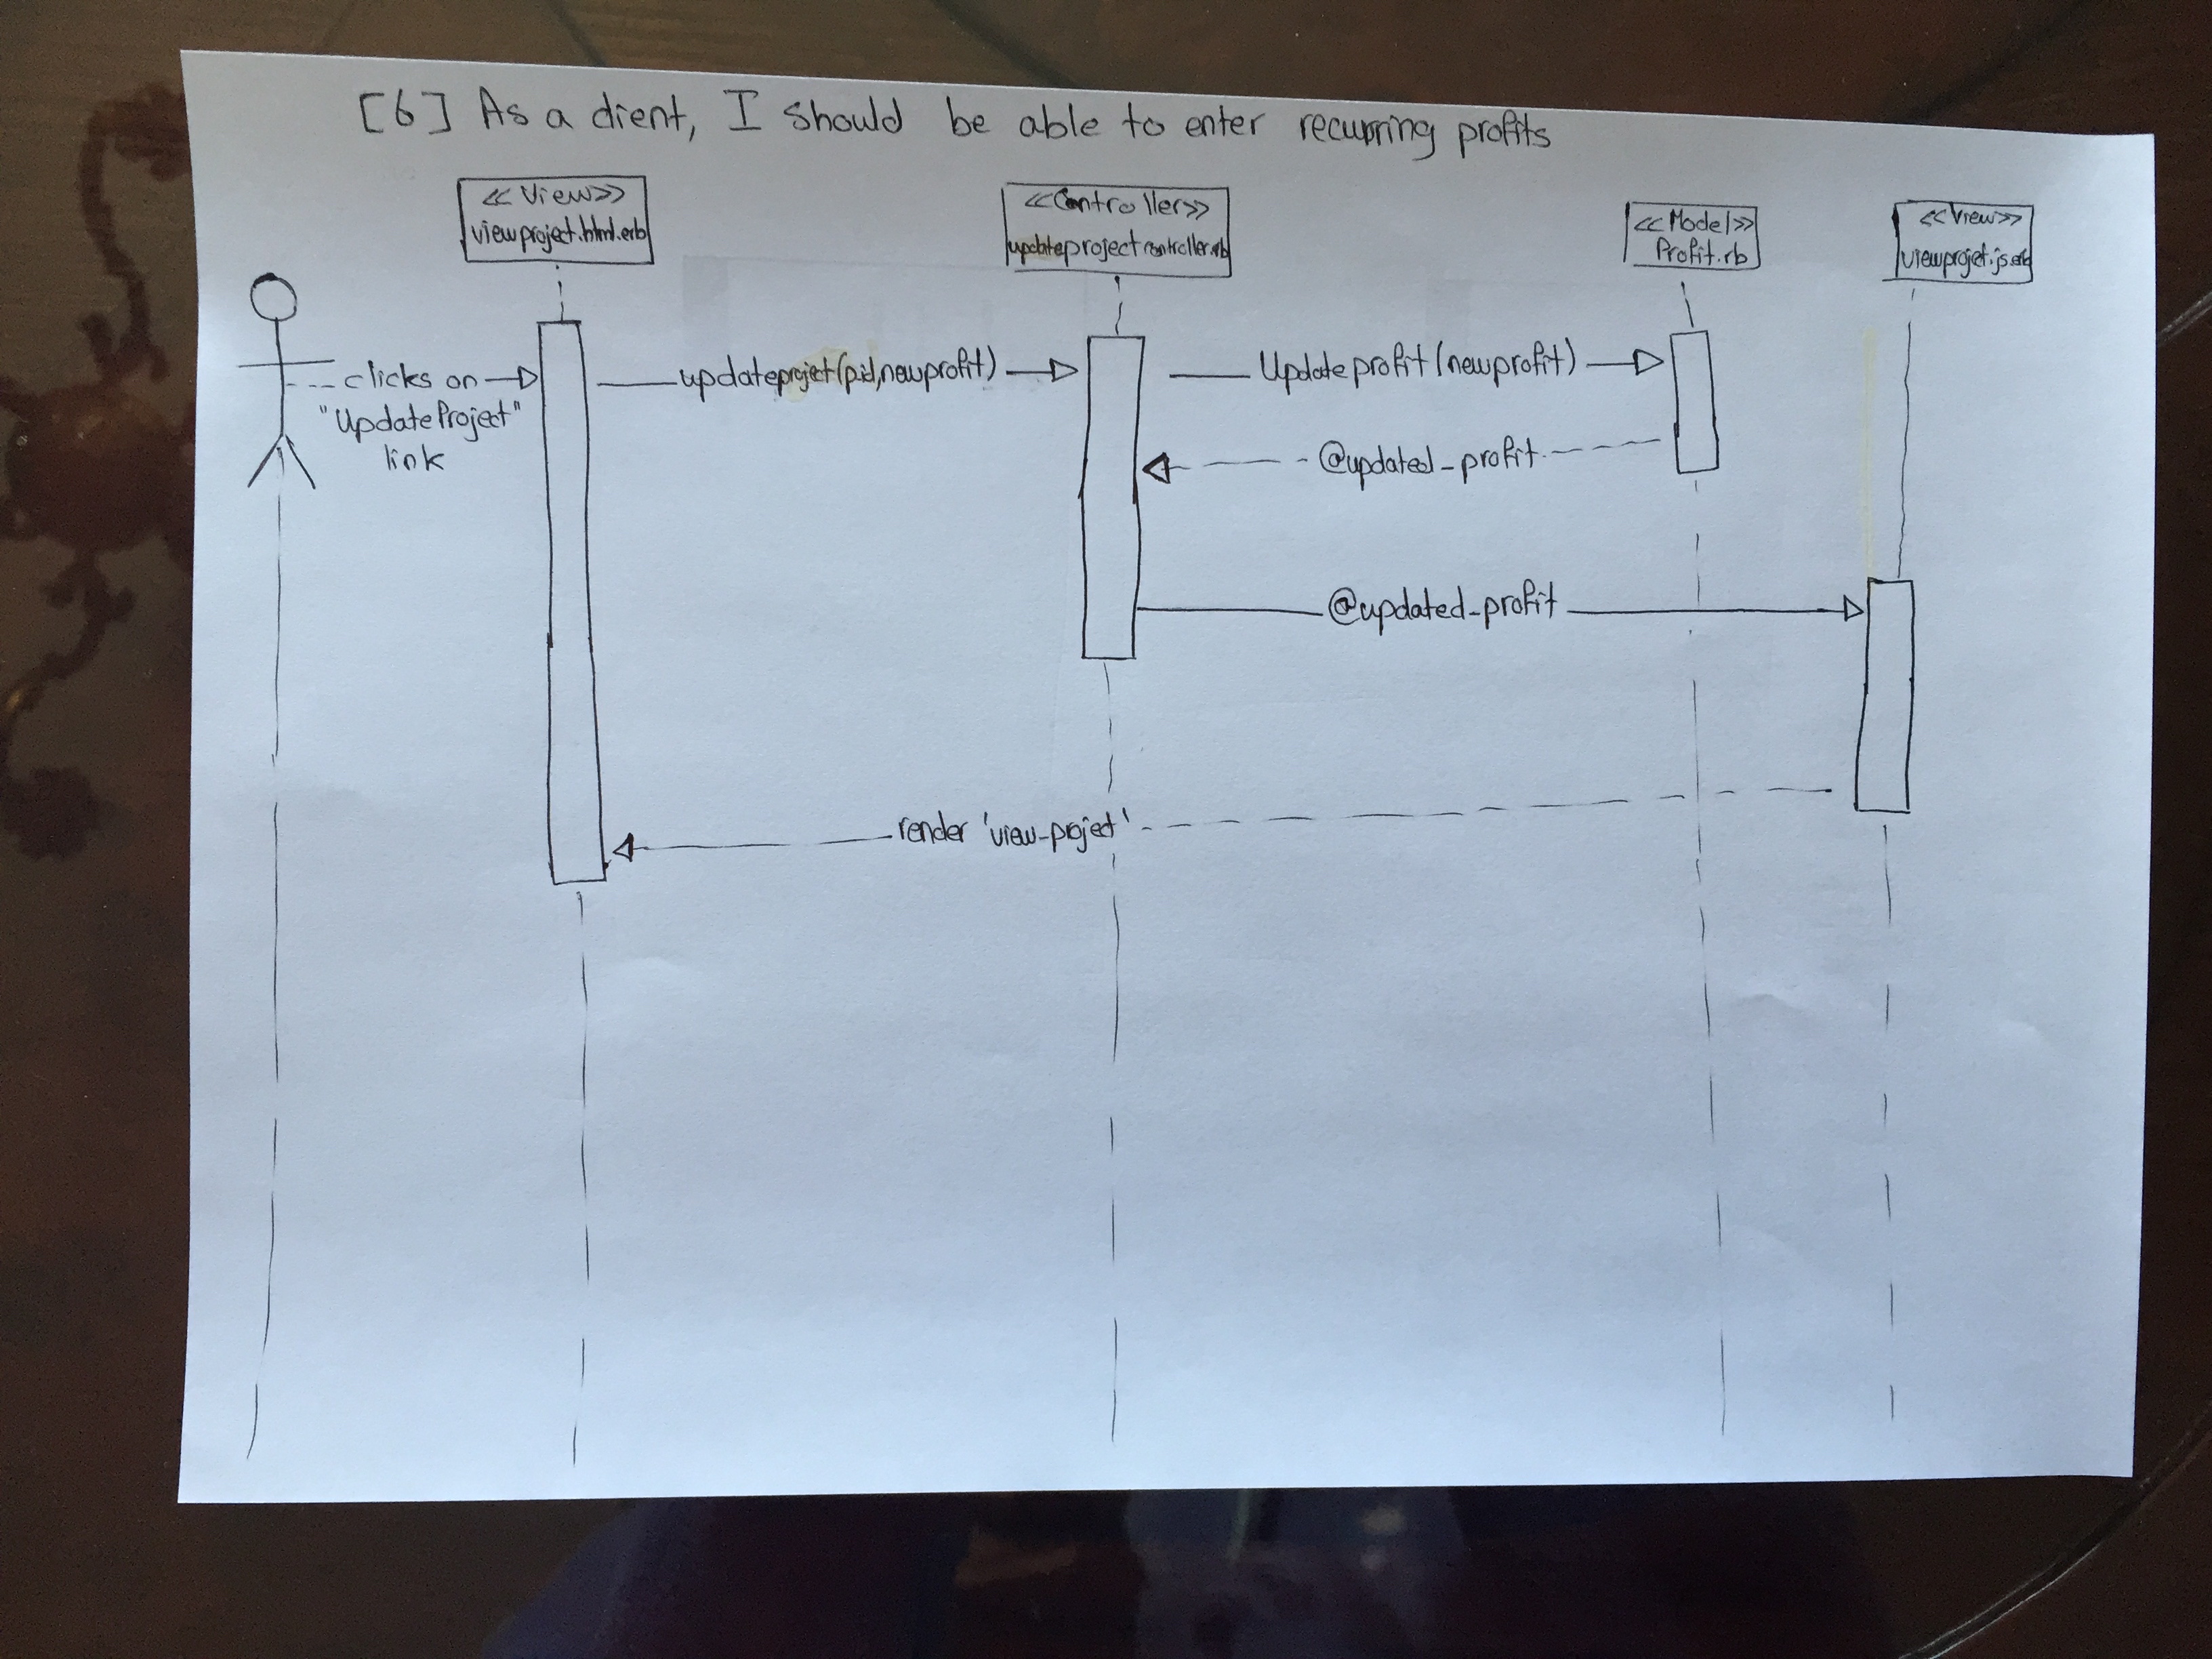 [6] As a client, I should be able to enter recurring profits
<<View>>
viewproject.html.erb
<<Controller>>
updateprojectcontroller.rb
<<Model>>
Profit.rb
<<View>>
viewprojet.js.erb
clicks on
"UpdateProject"
link
updateprojet(pid,newprofit)
Updateprofit(newprofit)
@updated_profit
@updated_profit
render 'view-project'